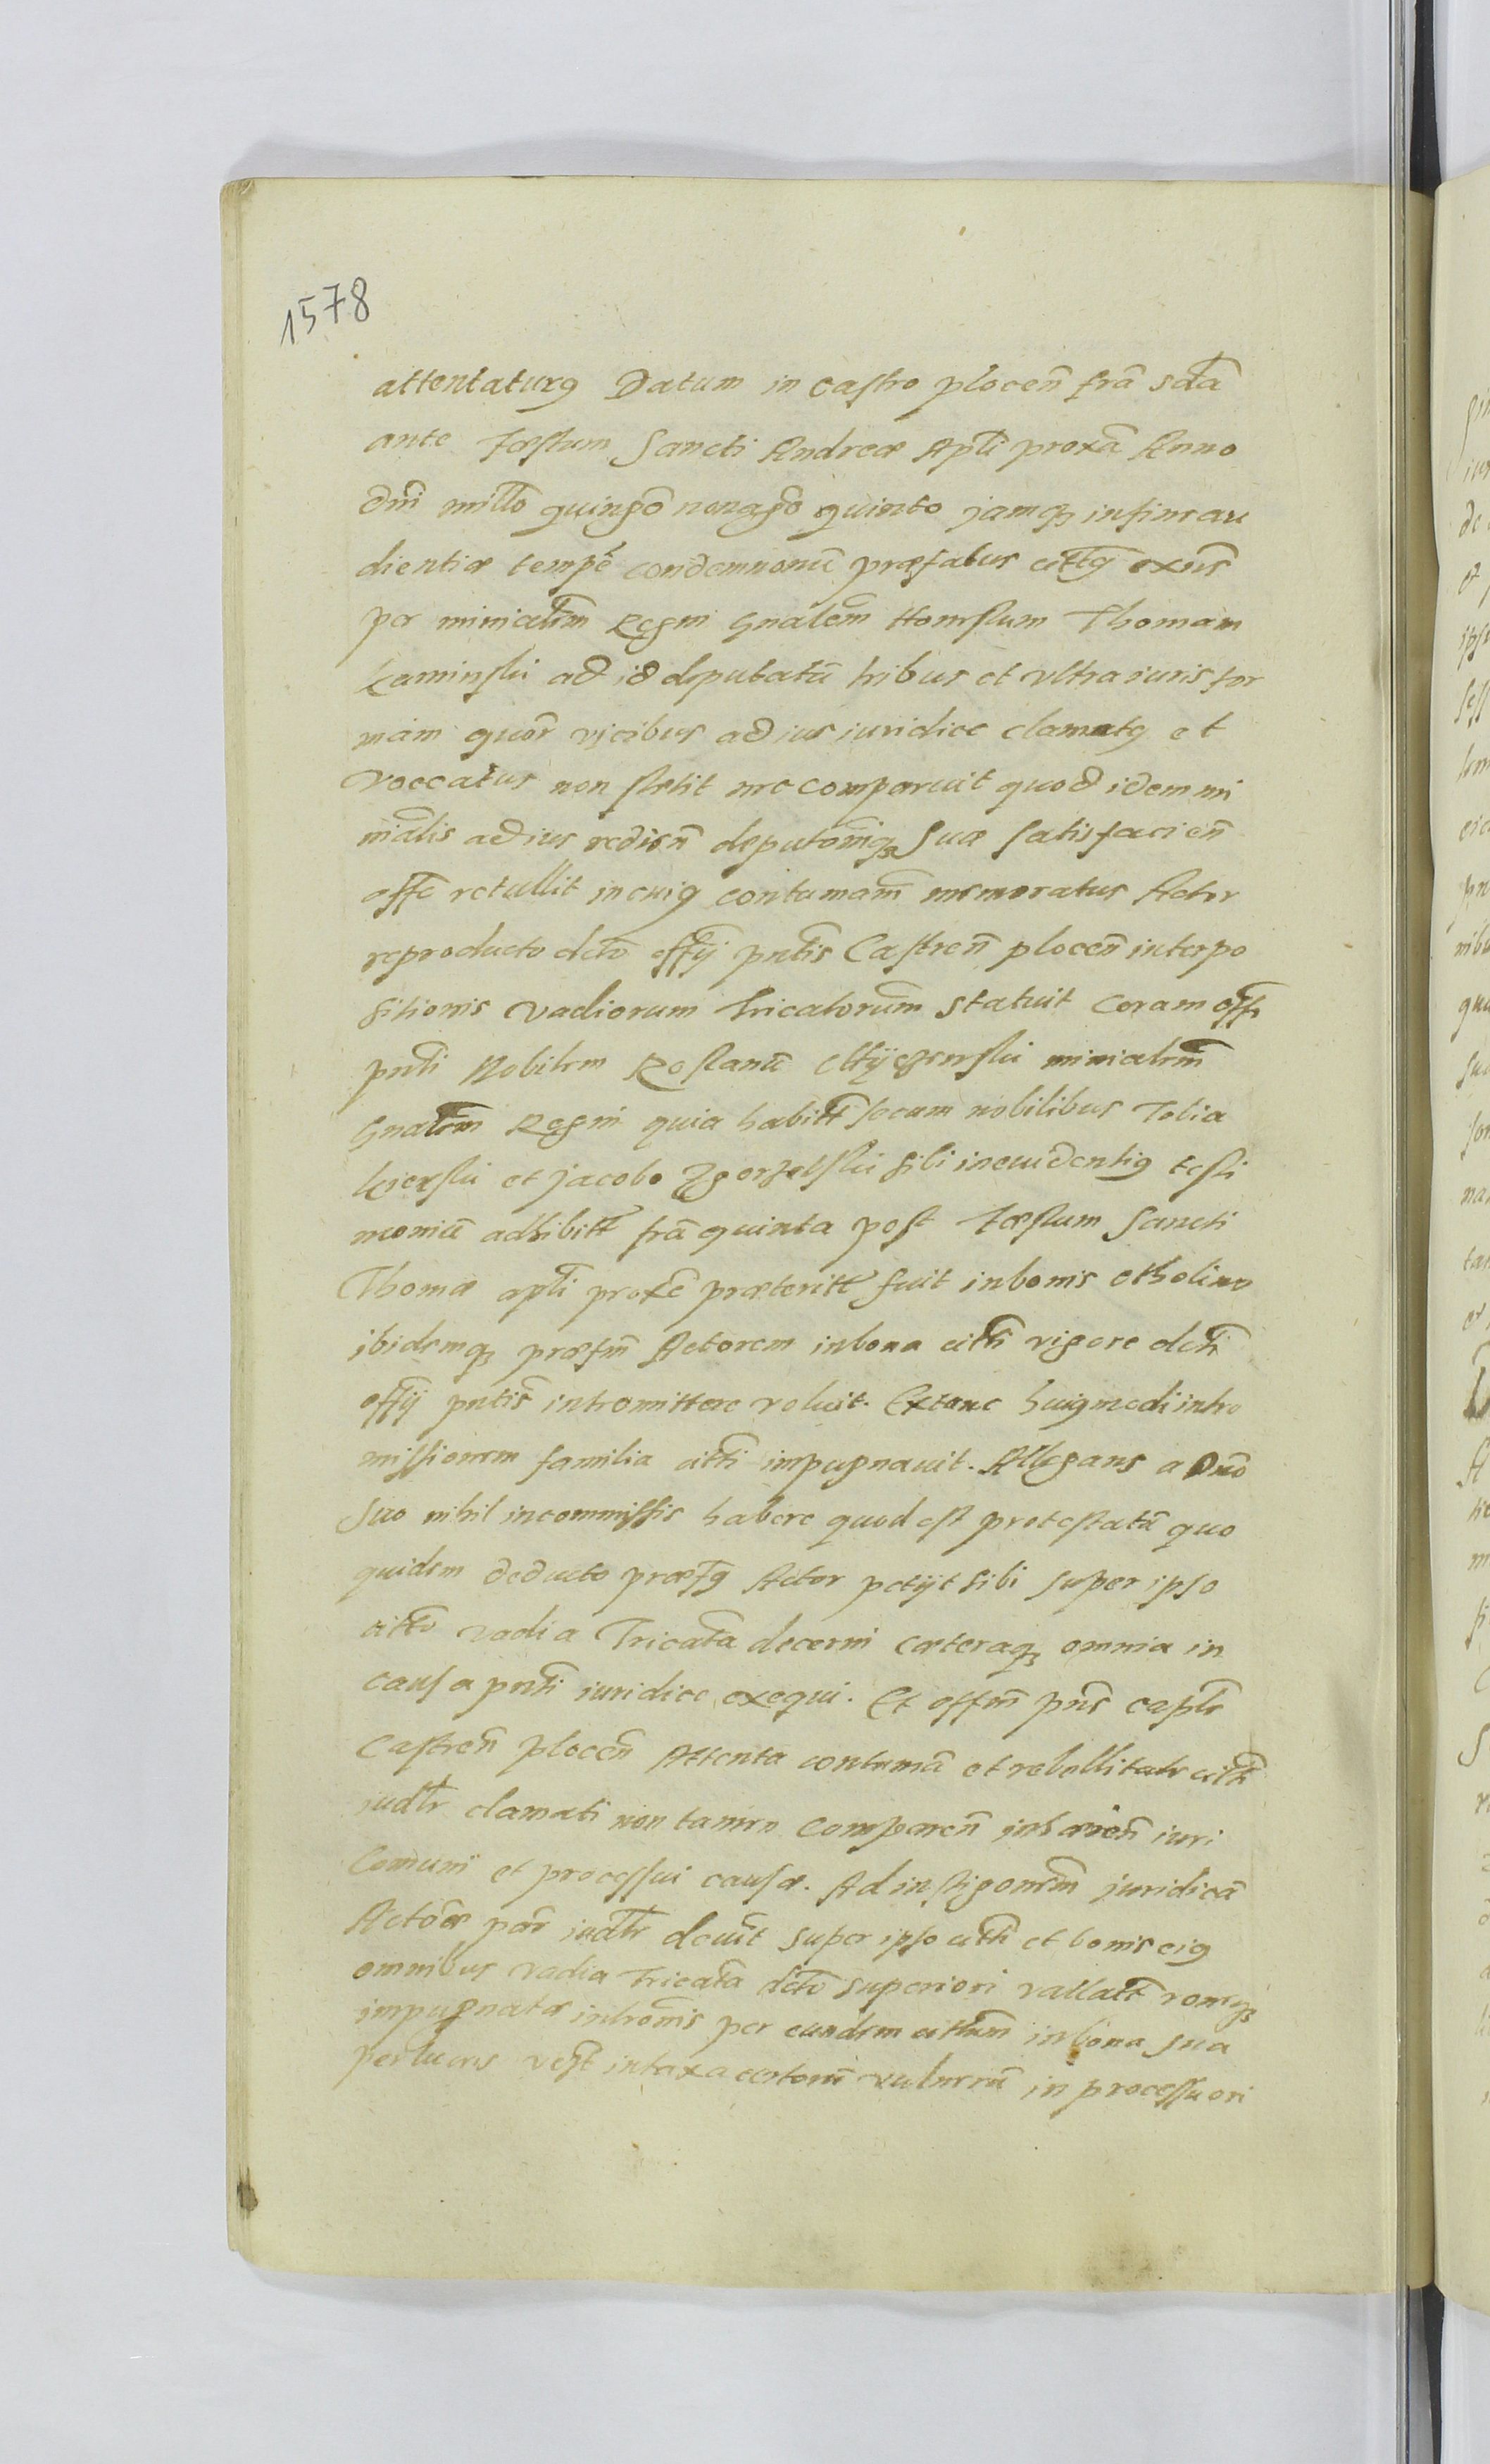 1578
attentaturꝯ Datum in castro plocen̄ fr̄a sc̄da
ante Fæstum Sancti Andreæ Apl̄i proxā Anno
dn̄i mill̄o quingō nonagō quinto jamqꝫ infine au
dientiæ temp̄e condemnonū præfatus citt̄ꝯ
per mini̅alem Regni Gn̄alem Honestum Thomam
Kaminski ad id deputatū tribus et ultra iuris for
mam quor̄ vicibus ad ius iuridice clamatꝯ et
voccatus non stetit nec comparuit quod idem mi
ni̅alis ad ius redien̄ deputōniqꝫ suæ satisfacien̄
off̄o retullit in cuiꝯ contumaām memoratus Actor
reproducto dctō off̄ij pn̄tis Castren̄ plocen̄ interpo
sitionis vadiorum tricatorum statuit coram off̄o
pn̄ti Nobilem minialem̄
Gn̄alem Regni quia habitt̄ secum nobilibus Tobia
Kierski et Jacobo Zgorzelski sibi in euidentiꝯ testi
moniū adhibitt̄ fr̄a quinta post Fæstum Sancti
Thomæ apl̄i proxē præteritt̄ fuit in bonis
ibidemqꝫ præfm̄ Actorem in bona citt̄i vigore dct̄i
off̄ij pn̄tis intromittere voluit. Extunc huiꝯmodi intro
missionem familia citt̄i impugnauit. Allegans a Dn̄o
suo nihil in commissis habere quod est protestatū quo
quidem deducto præfꝯ Actor petijt sibi super ipso
citt̄o vadia Tricatā decerni cæteraqꝫ omnia in
causa pn̄ti iuridice exequi. Et off̄m pn̄s capl̄e
Castren̄ plocen̄ Attenta contumā et rebellitate citt̄i
iudl̄r clamati non tamen comparen̄ inhæren̄ iuri
Com̄uni et processui causæ. Ad instigonem̄ juridicā
Actōris par̄ iudl̄r deuīt super ipso citt̄i et bonis eiꝯ
omnibus vadia tricatā dctō superiori vallatt̄ ronēqꝫ
impugnatæ introm̄is per eundem citt̄um in bona sua
per lucris in taxa certorū vulnerū in processu ori